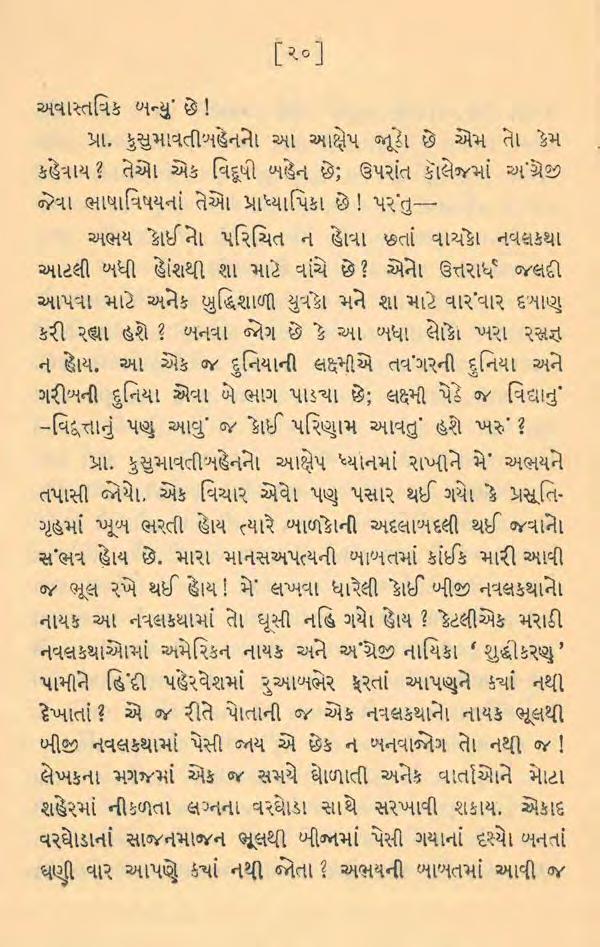 [૨૦]
અવાસ્તવિક બન્યું છે!
પ્રા. કુસુમાવતીબહેનનો આ આક્ષેપ જૂઠો છે એમ તો કેમ
કહેવાય? તેઓ એક વિદૂષી બહેન છે; ઉપરાંત કૉલેજમાં અંગ્રેજી
જેવા ભાષાવિષયનાં તેઓ પ્રાધ્યાપિકા છે! પરંતુ—
અભય કોઈનો પરિચિત ન હોવા છતાં વાચકો નવલકથા
આટલી બધી હોંશથી શા માટે વાંચે છે? એનો ઉત્તરાર્ધ જલદી
આપવા માટે અનેક બુદ્ધિશાળી યુવકો મને શા માટે વારંવાર દબાણ
કરી રહ્યા હશે? બનવા જોગ છે કે આ બધા લોકો ખરા રસજ્ઞ
ન હોય. આ એક જ દુનિયાની લક્ષ્મીએ તવંગરની દુનિયા અને
ગરીબની દુનિયા એવા બે ભાગ પાડ્યા છે; લક્ષ્મી પેઠે જ વિદ્યાનું
–વિદ્વત્તાનું પણ આવું જ કોઈ પરિણામ આવતું હશે ખરું?
પ્રા. કુસુમાવતીબહેનનો આક્ષેપ ધ્યાનમાં રાખીને મેં અભયને
તપાસી જોયો. એક વિચાર એવો પણ પસાર થઈ ગયો કે પ્રસૂતિ-
ગૃહમાં ખૂબ ભરતી હોય ત્યારે બાળકોની અદલાબદલી થઈ જવાનો
સંભવ હોય છે. મારા માનસઅપત્યની બાબતમાં કાંઈક મારી આવી
જ ભૂલ રખે થઈ હોય! મેં લખવા ધારેલી કોઈ બીજી નવલકથાનો
નાયક આ નવલકથામાં તો ઘૂસી નહિ ગયો હોય? કેટલીએક મરાઠી
નવલકથાઓમાં અમેરિકન નાયક અને અંગ્રેજી નાયિકા ‘શુદ્ધીકરણ’
પામીને હિંદી પહેરવેશમાં રુઆબભેર ફરતાં આપણને ક્યાં નથી
દેખાતાં? એ જ રીતે પોતાની જ એક નવલકથાનો નાયક ભૂલથી
બીજી નવલકથામાં પેસી જાય એ છેક ન બનવાજોગ તો નથી જ!
લેખકના મગજમાં એક જ સમયે ઘોળાતી અનેક વાર્તાઓને મોટા
શહેરમાં નીકળતા લગ્નના વરઘોડા સાથે સરખાવી શકાય. એકાદ
વરઘોડાનાં સાજનમાજન ભૂલથી બીજામાં પેસી ગયાનાં દૃશ્યો બનતાં
ઘણી વાર આપણે ક્યાં નથી જોતા? અભયની બાબતમાં આવી જ